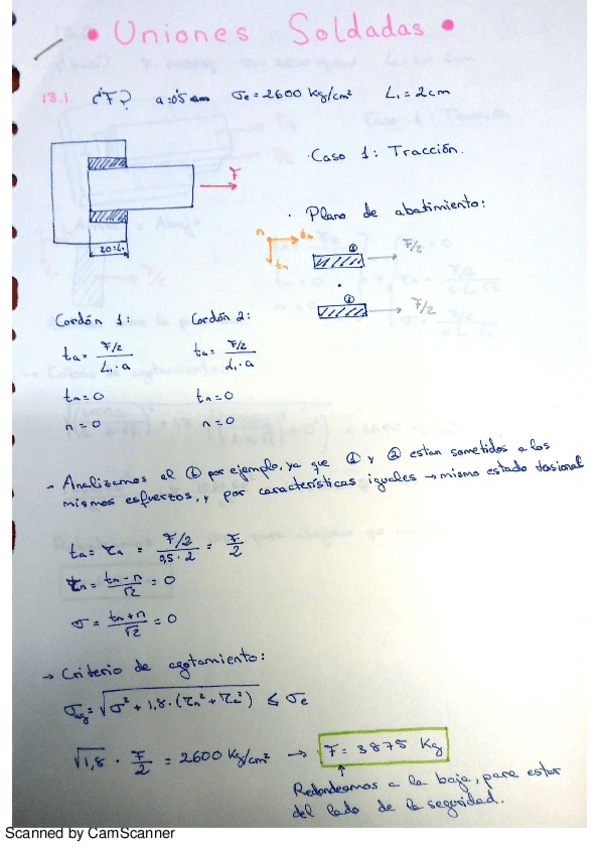 • Uniones Soldadas •
13.1 ¿F? a=0'5 cm σe = 2600 Kg/cm² L₁ = 2cm
· Caso 1: Tracción.
F
20=L₁
· Plano de abatimiento:
n ta
tn
① F/2
② F/2
Cordón 1: Cordón 2:
ta = F/2 / L₁·a ta = F/2 / L₁·a
tn = 0 tn = 0
n = 0 n = 0
- Analizamos el ① por ejemplo, ya que ① y ② estan sometidos a los
mismos esfuerzos, y por características iguales → mismo estado tasional
ta = τa = F/2 / 0,5·2 = F/2
τn = tn-n / √2 = 0
σ = tn+n / √2 = 0
→ Criterio de agotamiento:
σag = √σ² + 1,8·(τn² + τa²) ≤ σe
√1,8 · F/2 = 2600 Kg/cm² → F = 3875 Kg
Redondeamos a la baja, para estar
del lado de la seguridad.
Scanned by CamScanner